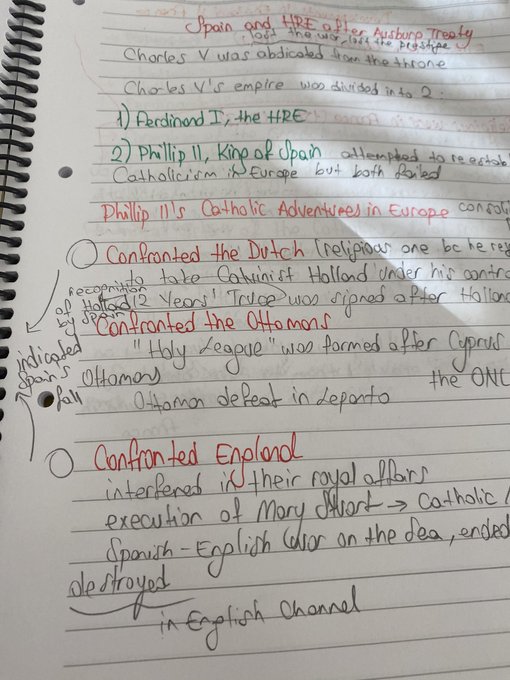 Spain and HRE after Ausburg Treaty
lost the war, lost the prestige
Charles V was abdicated from the throne
Charles V's empire was divided into 2:
1) Ferdinand I, the HRE
2) Phillip II, King of Spain attempted to reestab
Catholicism in Europe but both failed
Phillip II's Catholic Adventures in Europe consoli
Confronted the Dutch (religious one bc he re
to take Calvinist Holland under his contro
recognition
of Holland
by Spain
12 Years' Truce was signed after Holland
Confronted the Ottomans
"Holy League" was formed after Cyprus
indicated
Spain's
fall
Ottomans
the ONL
Ottoman defeat in Lepanto
Confronted England
interfered in their royal affairs
execution of Mary Stuart → Catholic
Spanish-English War on the Sea, ended
destroyed
in English Channel